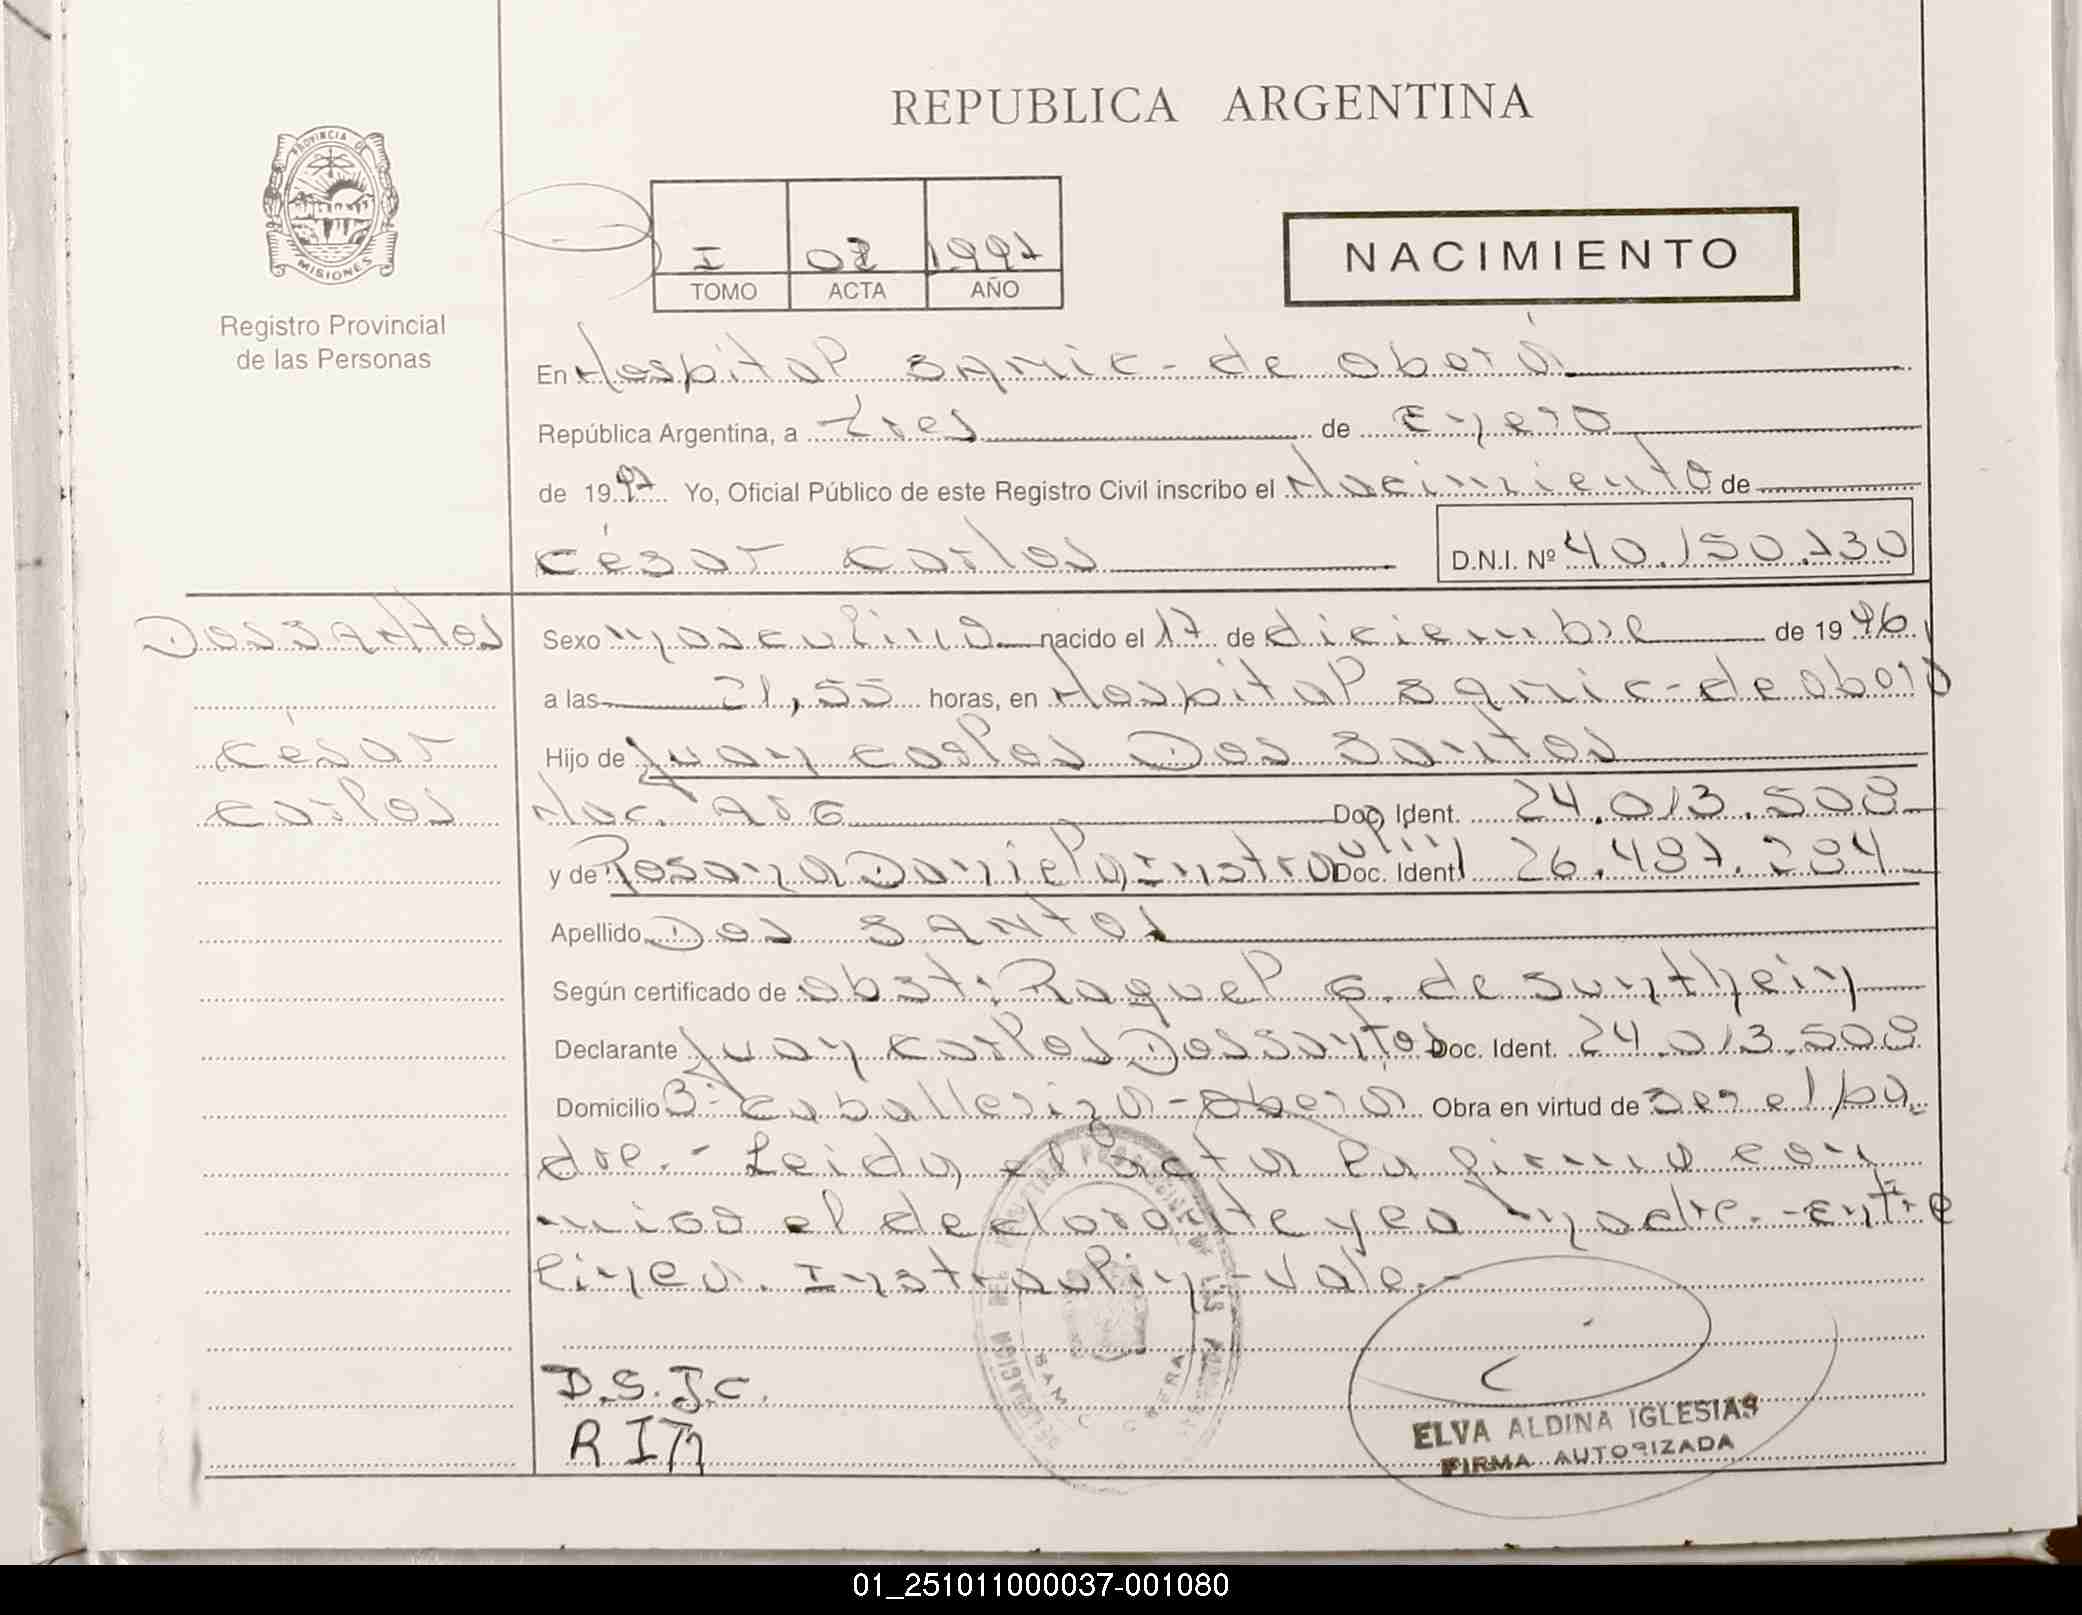 REPUBLICA ARGENTINA
PROVINCIA DE
MISIONES
Registro Provincial
de las Personas
I 02 1997
TOMO ACTA AÑO
NACIMIENTO
En Hospital SAMIC - de oberá
República Argentina, a tres de Enero
de 1997 Yo, Oficial Público de este Registro Civil inscribo el Nacimiento de
César Carlos D.N.I. Nº 40.150.730
Dos SANtos
César
Carlos
Sexo masculino nacido el 17 de diciembre de 1996
a las 21,55 horas, en Hospital Samic - de oberá
Hijo de Juan Carlos Dos Santos
Nac. Arg Doc. Ident. 24.013.508
y de Rosana Daniela Instraulin Doc. Ident. 26.487.284
Apellido Dos SANtos
Según certificado de obst: Raquel G. de Sunthein
Declarante Juan Carlos Dos Santos Doc. Ident. 24.013.508
Domicilio Bº Caballeriza - Oberá Obra en virtud de ser el pa
dre. - Leida el acta la firma con
migo el declarante y la madre. - Entre
linea. Instraulin - Vale. -
D.S.J.C.
R I M
ELVA ALDINA IGLESIAS
FIRMA AUTORIZADA
01_251011000037-001080